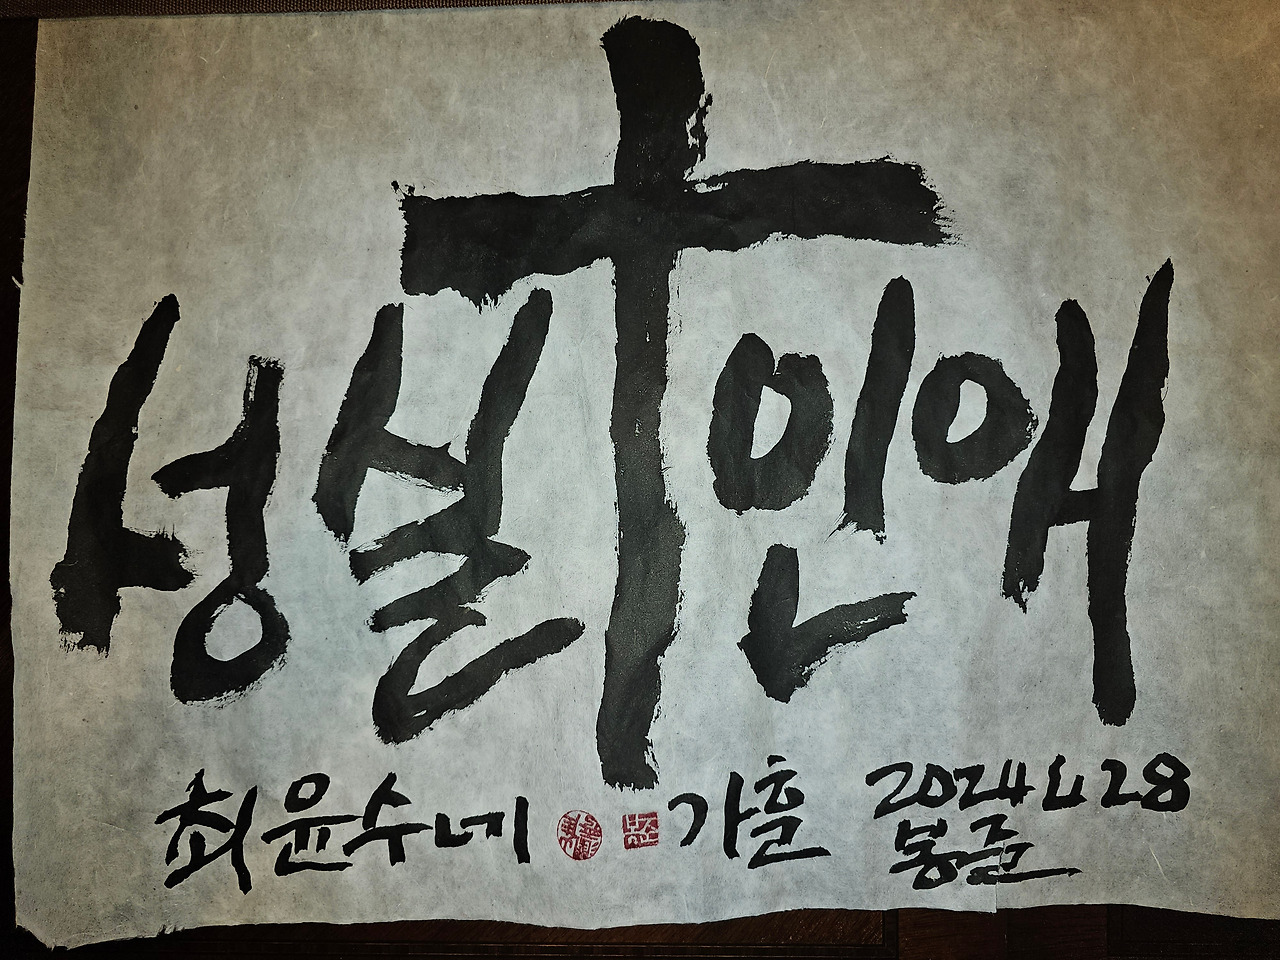 성실 인애
최윤수네 가훈 2024 4 28
봉준